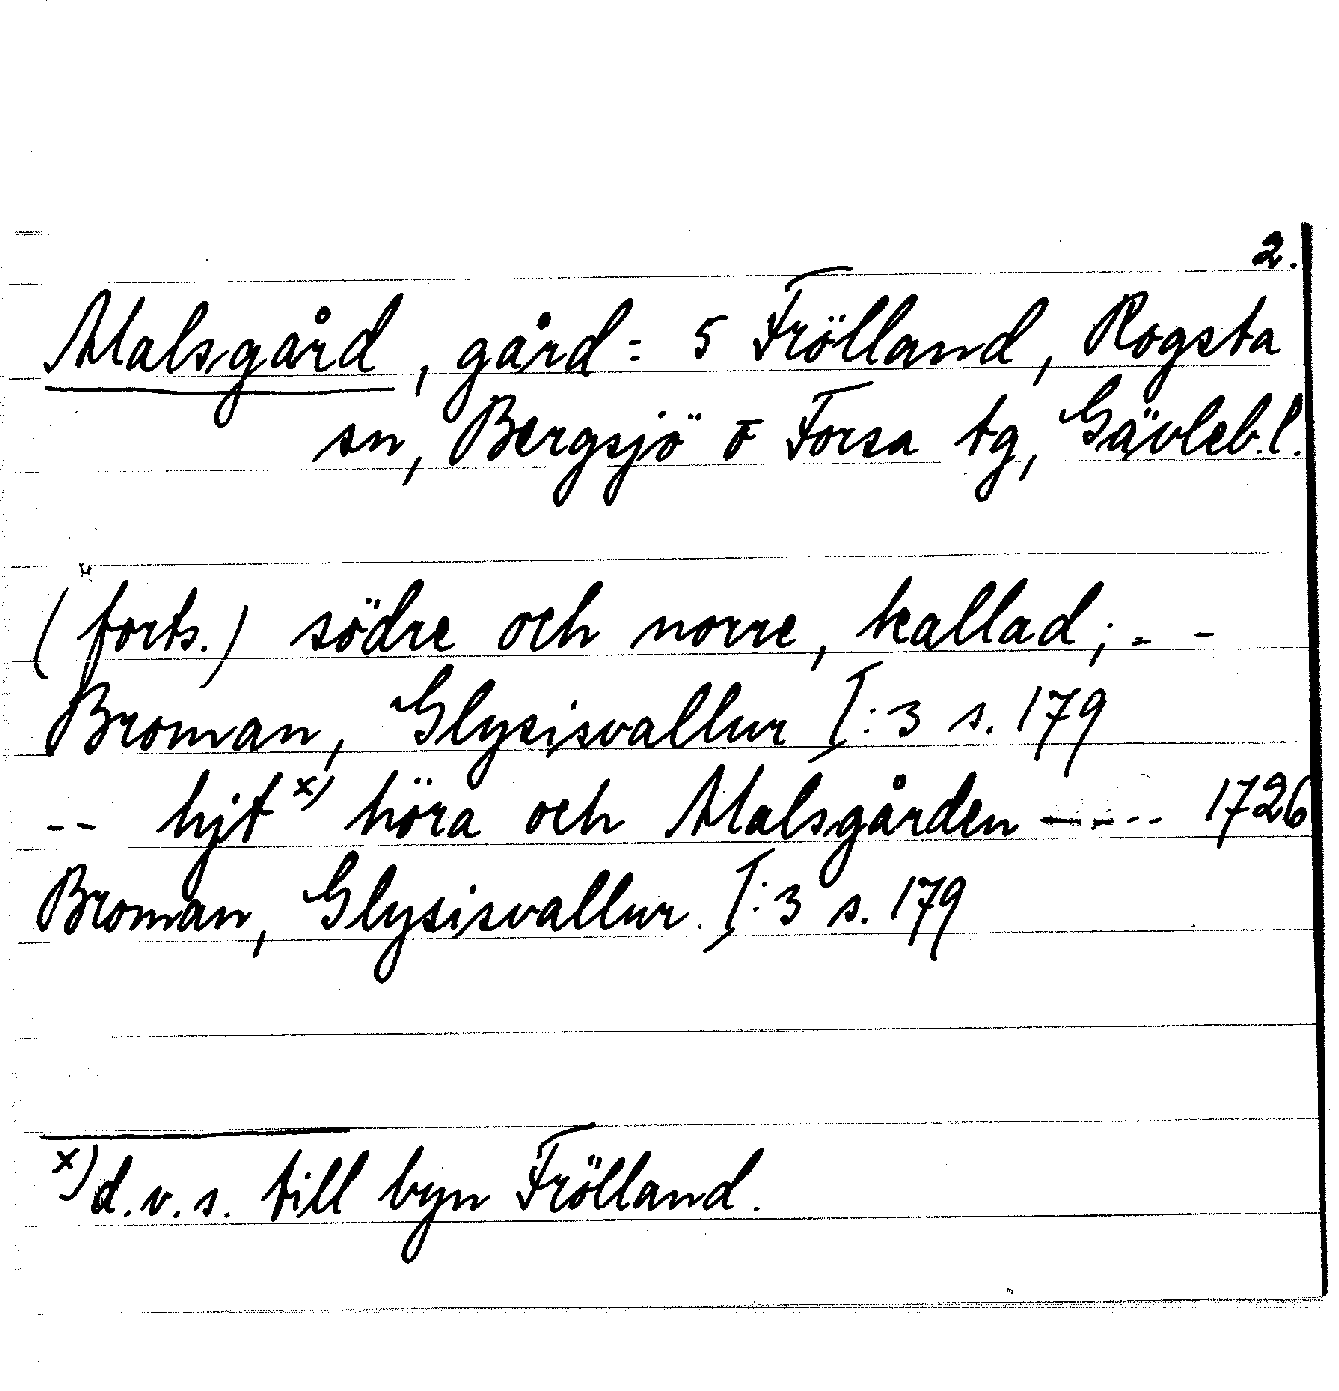 2.
Malsgård, gård = 5 Frölland, Rogsta
sn, Bergsjö o Forsa tg, Gävleb.l.
(forts.) södre och norre, kallad; - -
Broman, Glysisvallur I:3 s. 179
-- hjt x) höra och Malsgården ---- 1726
Broman, Glysisvallur. I:3 s. 179
x) d.v.s. till byn Frölland.